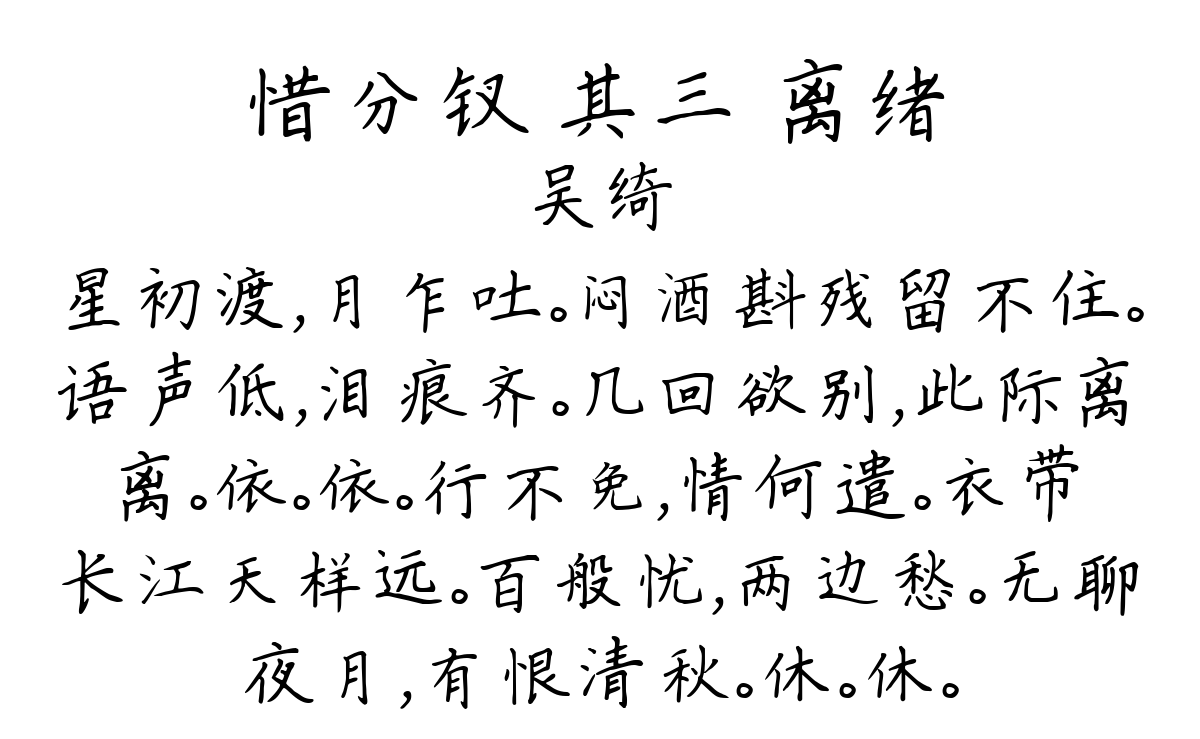 惜分钗 其三 离绪
吴绮
星初渡,月乍吐。闷酒斟残留不住。
语声低,泪痕齐。几回欲别,此际离
离。依。依。行不免,情何遣。衣带
长江天样远。百般忧,两边愁。无聊
夜月,有恨清秋。休。休。